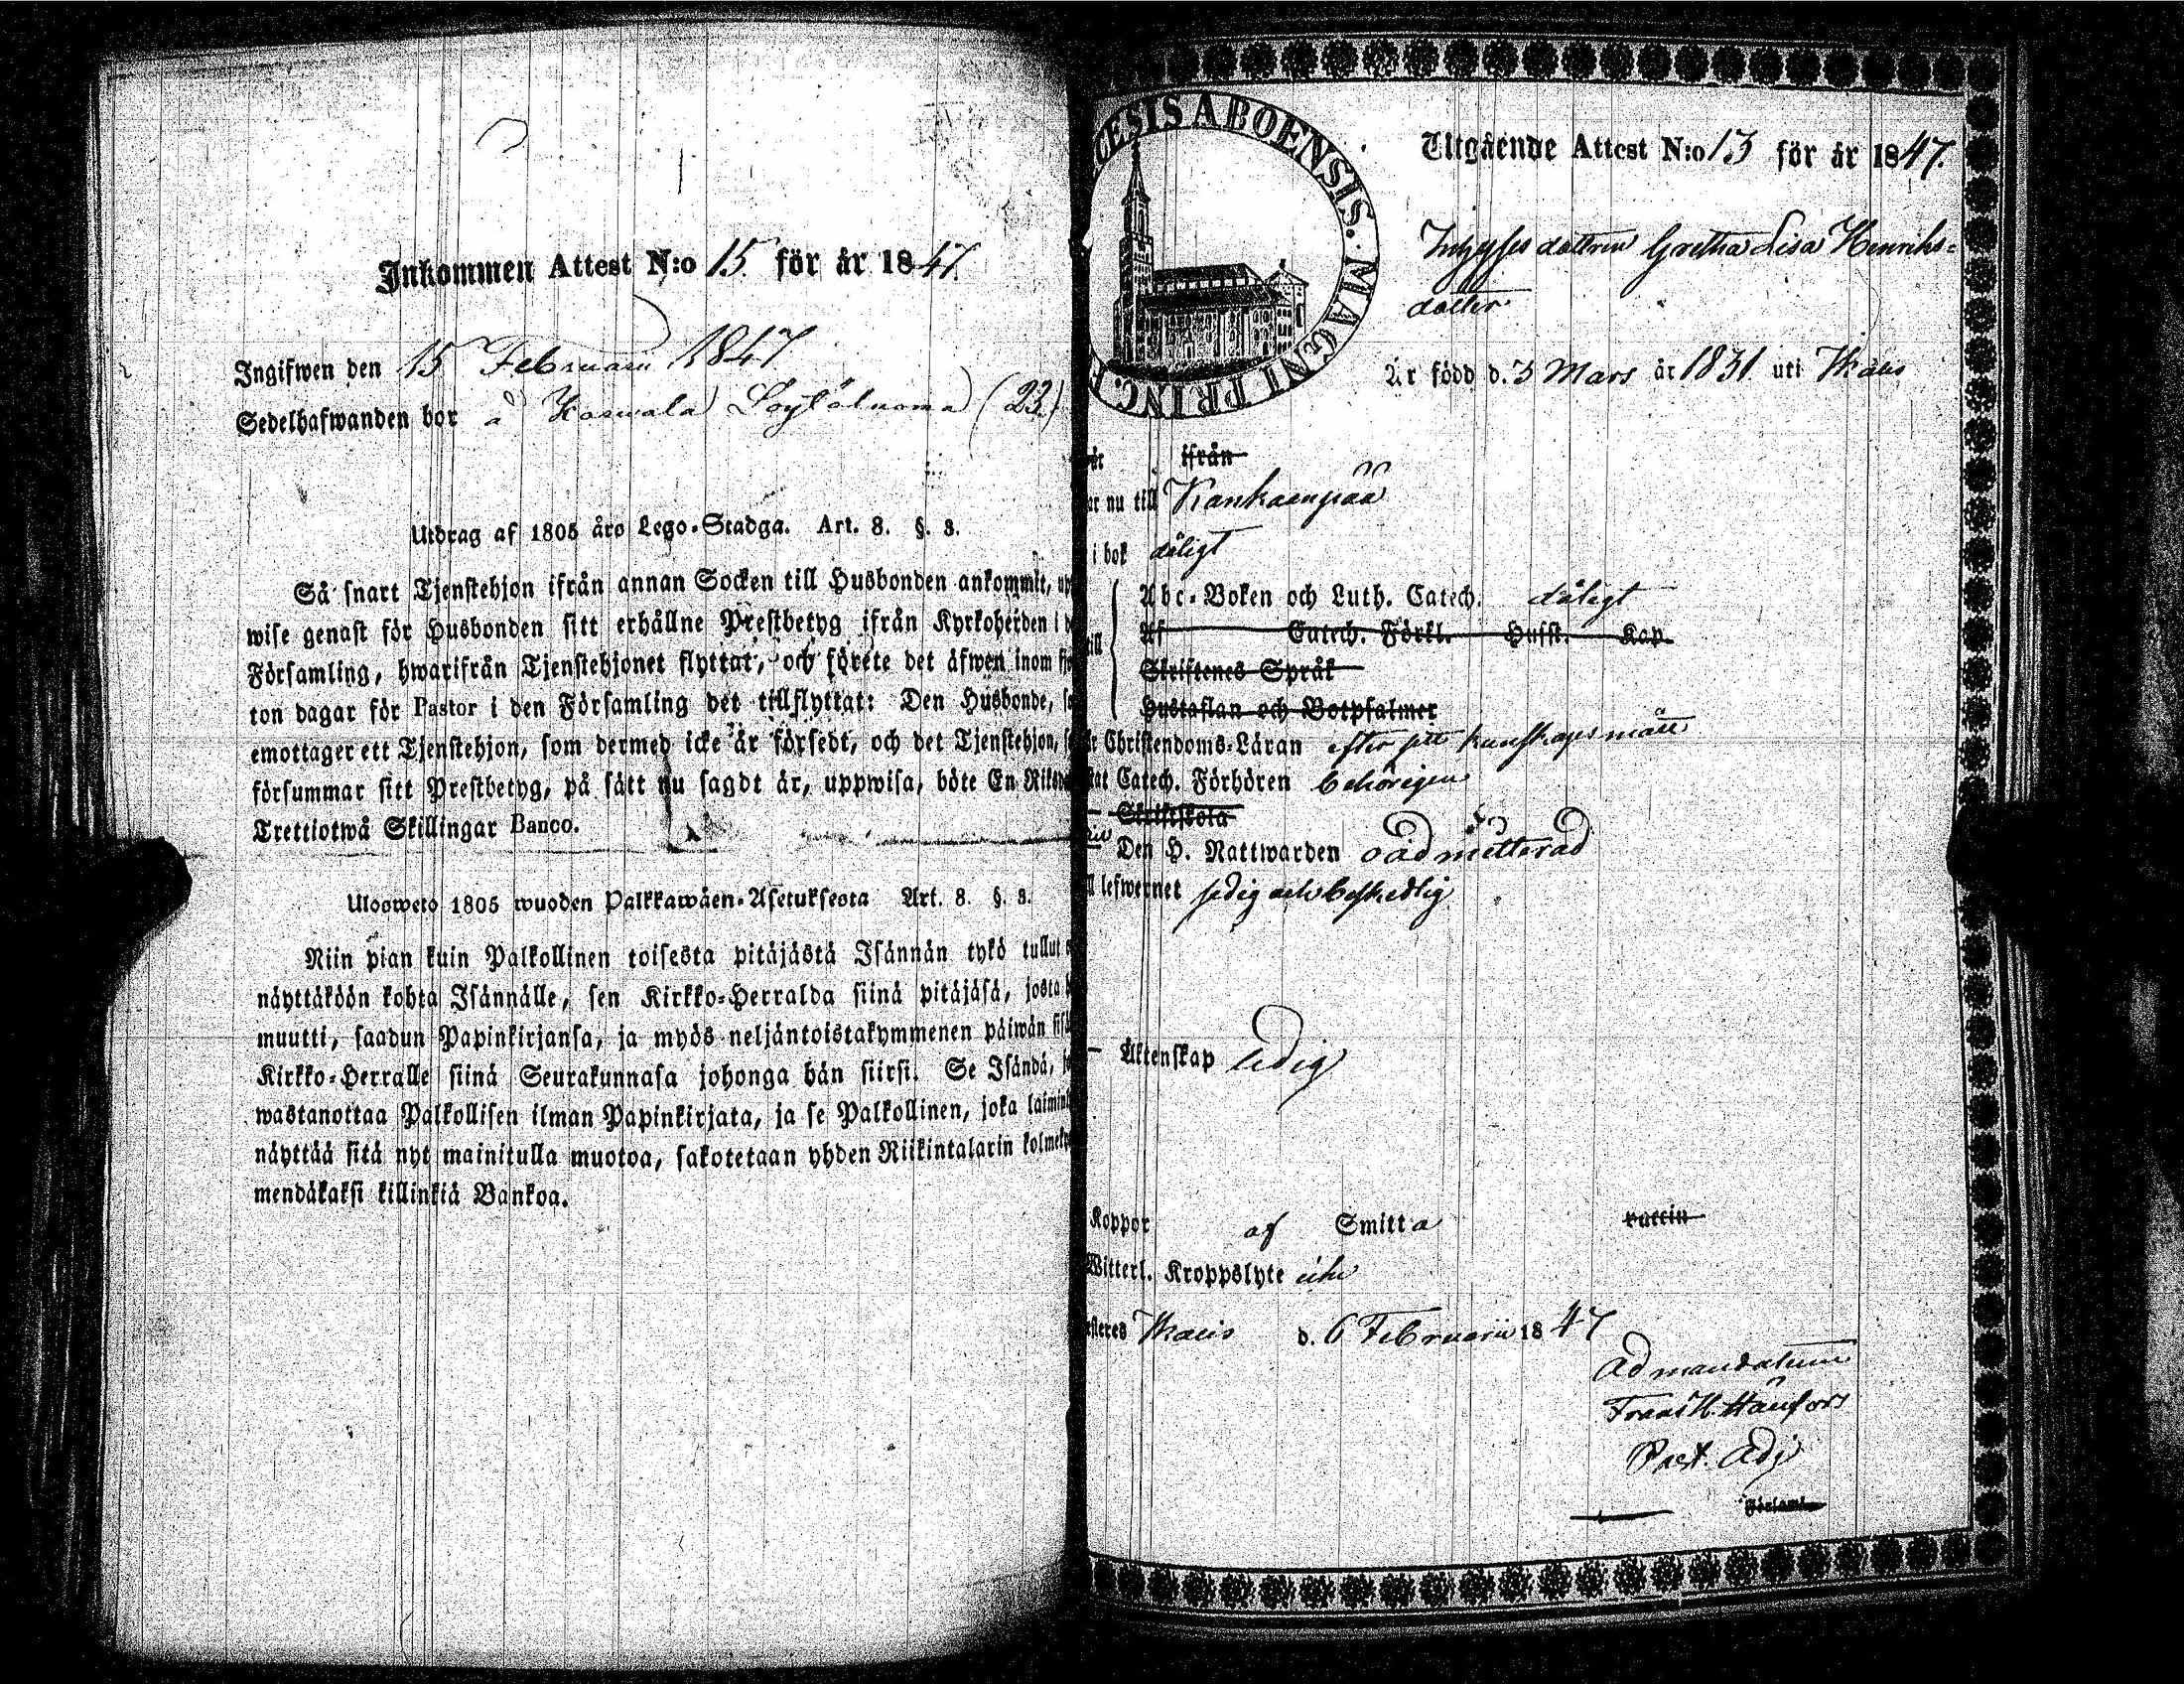 Inkommen Attest N:o 15. för år 1847.
Ingifwen den 15 Februarii 1847
Sedelhafwanden bor å (23)
Utdrag af 1805 års Lego-Stadga. Art. 8. §. 3.
Så snart Tjenstehjon ifrån annan Socken till Husbonden ankommit,
wise genast för Husbonden sitt erhållne Prestbetyg ifrån Kyrkoherden i
Församling, hwarifrån Tjenstehjonet flyttat, och förete det äfwen inom
ton dagar för Pastor i den Församling det tillflyttat: Den Husbonde,
emottager ett Tjenstehjon, som dermed icke är försedt, och det Tjenstehjon,
försummar sitt Prestbetyg, på sätt nu sagdt är, uppwisa, böte En
Trettiotwå Skillingar Banco.
Ulosweto 1805 wuoden Palkkawäen-Asetuksesta Art. 8. §. 3.
Niin pian kuin Palkollinen toisesta pitäjästä Isännän tykö tullut
näyttäköön kohta Isännälle, sen Kirkko-Herralda siinä pitäjäsä, josta
muutti, saadun Papinkirjansa, ja myös neljäntoistakymmenen päiwän
Kirkko-Herralle siinä Seurakunnasa johonga hän siirsi. Se Isändä,
wastanottaa Palkollisen ilman Papinkirjata, ja se Palkollinen, joka
näyttää sitä nyt mainitulla muotoa, sakotetaan yhden Riikintalarin
mendäkaksi killinkiä Bankoa.
CESIS ABOENSIS. MAGNI PRINC. F
Utgående Attest N:o 13 för år 1847.
Inhyses dottren Gretha Lisa Henriks-
dotter
Är född d. 3 Mars år 1831 uti Ikalis
ifrån
nu till Kankaanpää
i bok dåligt
Abc-Boken och Luth. Catech. dåligt
Af Catech. Förkl. Hufst. Kap.
Skriftenes Språk
Hustaflan och Botpsalmer
Christendoms-Läran efter sitt kunskaps mått
Catech. Förhören behörigen
Skriftskola
Den H. Nattwarden oadmitterad
lefwernet sedig och beskedlig
Äktenskap ledig
Koppor af Smitta vaccin
Witterl. Kroppslyte icke
Ikalis d. 6 Februarii 1847
Ad mandatum
Past. Adj
Församl.